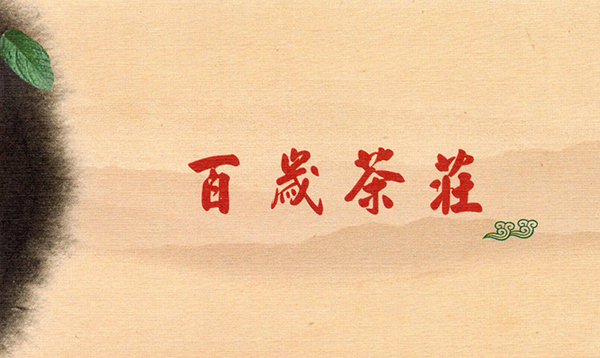 百歲茶莊